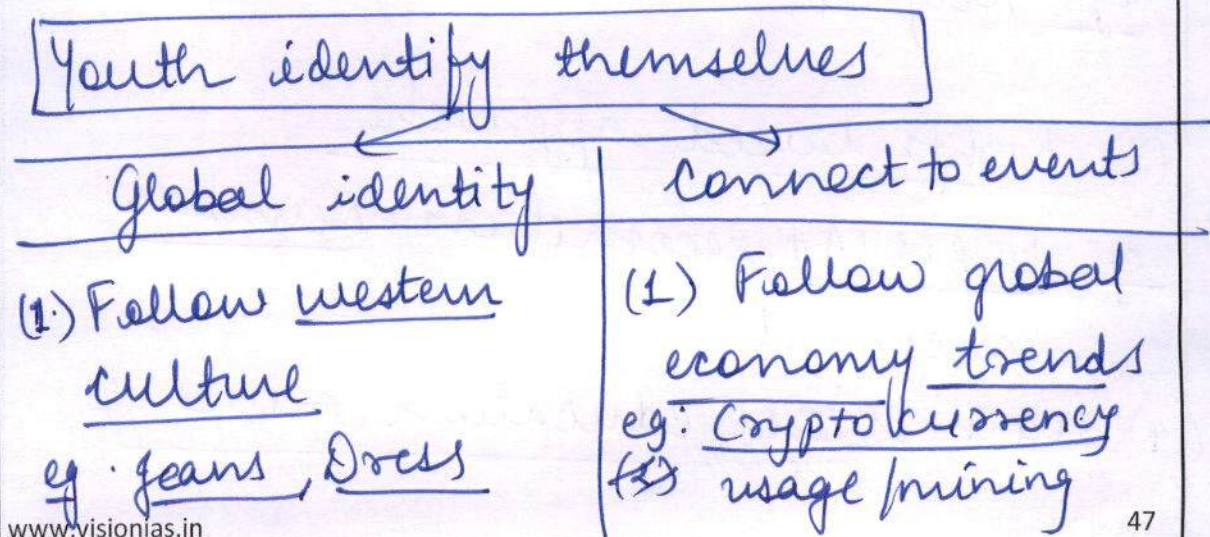 Youth identify themselves
Global identity
(1.) Follow western
culture
eg. Jeans, Dress
Connect to events
(1) Follow global
economy trends
eg: Cryptocurrency
usage/mining
www.visionias.in
47